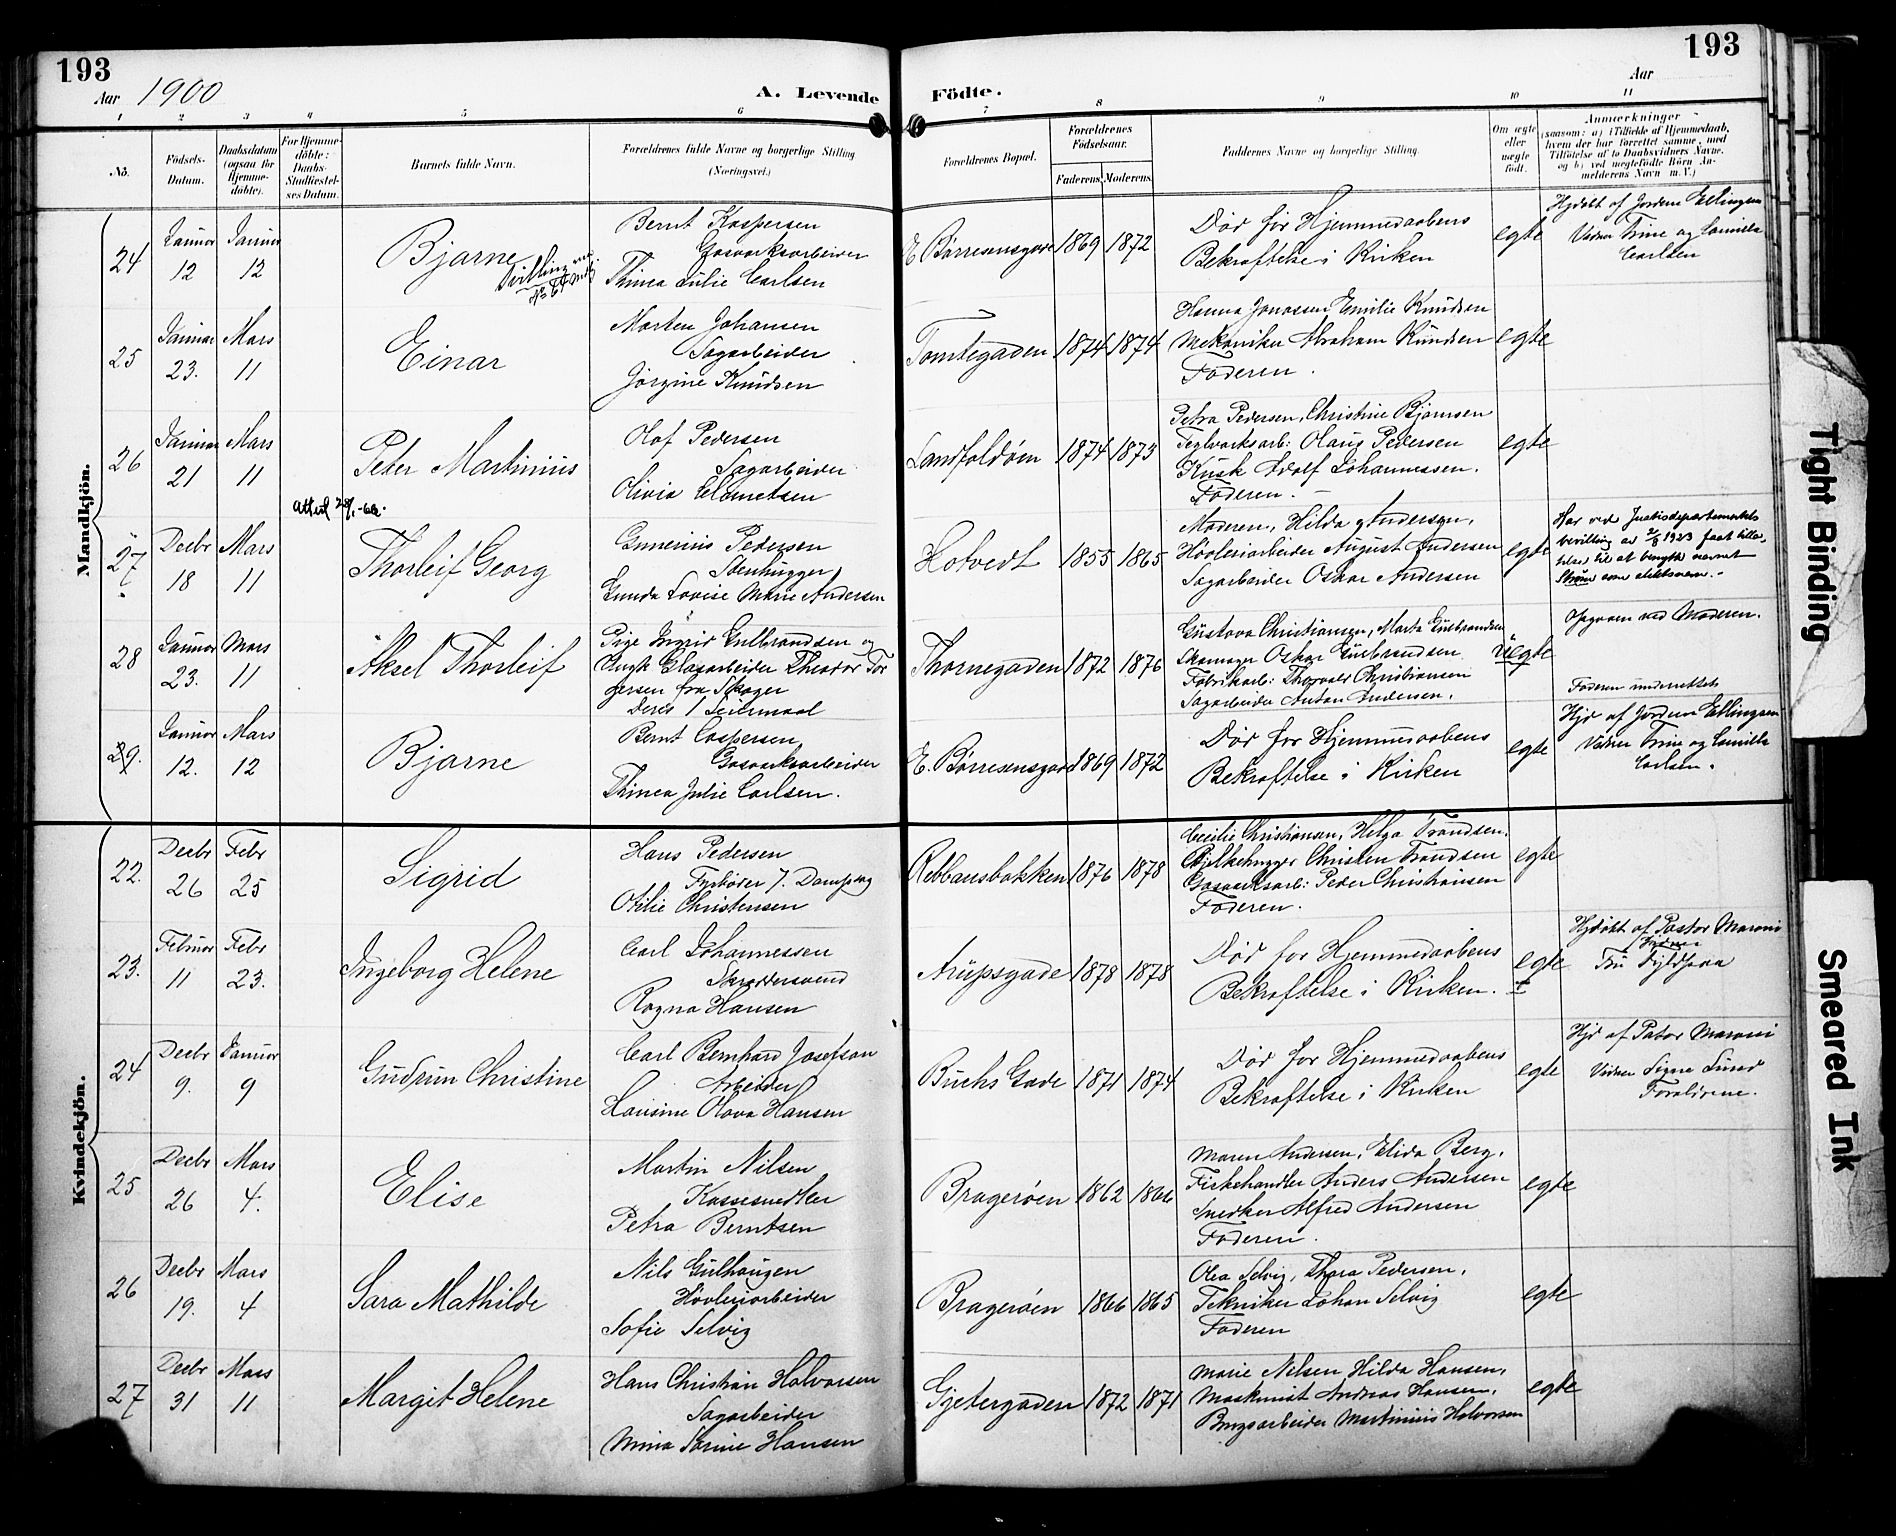 193
193
Aar 1900
A. Levende Födte.
Aar
1 2 3 4 5 6 7 8 9 10 11
No.
Födsels-Datum.
Daabsdatum (ogsaa for Hjemme-döbte).
For Hjemme-döbte: Daabs-Stadfæstel-ses Datum.
Barnets fulde Navn.
Forældrenes fulde Navne og borgerlige Stilling (Næringsvei.)
Forældrenes Bopæl.
Forældrenes Födselsaar.
Faderens. Moderens.
Faddernes Navne og borgerlige Stilling.
Om ægte eller uægte födt.
Anmærkninger
(saasom: a) i Tilfælde af Hjemmedaab, hvem der har forrettet samme, med Tilföielse af to Daabsvidners Navne, og b) ved uægtefödte Börn An-melderens Navn m. V.)
Mandkjön.
24
Januar 12
Januar 12
Bjarne
Tvilling
Bernt Kaspersen
Gasværksarbeider
Thinea Julie Carlsen
E. Börresensgade
1869 1872
Död för Hjemmedaabens
Bekræftelse i Kirken
egte
Hjdöbt af Jordem Ellingsen
Vidner Trine og Camilla
Carlsen
25
Januar 23.
Mars 11
Einar
Morten Johansen
Sagarbeider
Jörgine Knudsen
Tomtegaden
1874 1874
Hanna Jonassen Emilie Knudsen
Mekaniker Abraham Knudsen
Faderen.
egte
26
Januar 21
Mars 11
Peter Martinius
Olaf Pedersen
Sagarbeider
Olivia Clemetsen
Landfaldöen
1874 1873
Petra Pedersen, Christine Bjørnsen
Teglværksarb: Olaus Pedersen
Kusk Adolf Johannessen.
Faderen.
egte
27
Decbr 18
Mars 11
Thorleif Georg
Gunerius Pedersen
Stenhugger
Gunda Lovise Marie Andersen
Hotvedt
1855 1865
Moderen, Hilda Andersen,
Hövleriarbeider August Andersen
Sagarbeider Oskar Andersen
egte
Har ved Justisdepartementets
bevilling av 2/8 1923 faat tilla-
telse til at benytte navnet
Strøm som slektsnavn.-
28
Januar 23.
Mars 11
Aksel Thorleif
Pige Ingrid Gulbrandsen og
Ungk Glasarbeider Theodor Tor
gersen fra Skoger
Deres 1 Leiermaal
Thornegaden
1872 1876
Gustava Christiansen, Marta Gulbrandsen
Skomager Oskar Gulbrandsen
Fabrikarb: Thorvald Christiansen
Sagarbeider Anton Andersen.
uegte
Opgaven ved Moderen.
Faderen underrettet
29.
Januar 12.
Mars 12
Bjarne
Bernt Caspersen
Gasværksarbeider
Thinea Julie Carlsen.
E. Börresensgade
1869 1872
Död för Hjemmedaabens
Bekræftelse i Kirken
egte
Hjd af Jordem Ellingsen
Vidner Trine og Camilla
Carlsen.
Kvindekjön.
22.
Decbr 26
Febr 25
Sigrid
Hans Pedersen
Fyrböder p. Dampsag
Otilie Christensen
Rebbansbakken
1876 1878
Cecilie Christiansen, Helga Trondsen.
Bjelkehugger Christen Trondsen
Gasværksarb: Peder Christiansen
Faderen.
egte
23.
Februar 11
Febr 23.
Ingeborg Helene
Carl Johannessen
Skreddersvend
Ragna Hansen
Arupsgade
1878 1878
Död för Hjemmedaabens
Bekræftelse i Kirken.
egte
Hjdöbt af Pastor Maroni
Vidner
24
Decbr 9.
Januar 9
Gudrun Christine
Carl Bernhard Josefson
Arbeider
Lovisine Olava Hansen
Buchs Gade
1871 1874
Död för Hjemmedaabens
Bekræftelse i Kirken
egte
Hjd af Pator Maroni
Vidner Signe Lund
Forældrene.
25
Decbr 26
Mars 4.
Elise
Martin Nilsen
Kassesnedker
Petra Berntsen
Bragerøen
1862 1866
Maren Andersen, Elida Berg,
Fiskehandler Anders Andersen
Snedker Alfred Andersen
Faderen.
egte
26
Decbr 19.
Mars 4
Sara Mathilde
Nils Gulhaugen
Hövleriarbeider
Sofie Selvig
Bragerøen
1866 1865
Olea Selvig, Thora Pedersen,
Tekniker Johan Selvig
Faderen
egte
27
Decbr 31
Mars 11
Margit Helene
Hans Christian Halvorsen
Sagarbeider
Mina Karine Hansen
Gjetergaden
1872 1871
Marie Nilsen Hilda Hansen,
Maskinist Andreas Hansen,
Brugsarbeider Martinius Halvorsen
egte
Tight Binding
Smeared Ink